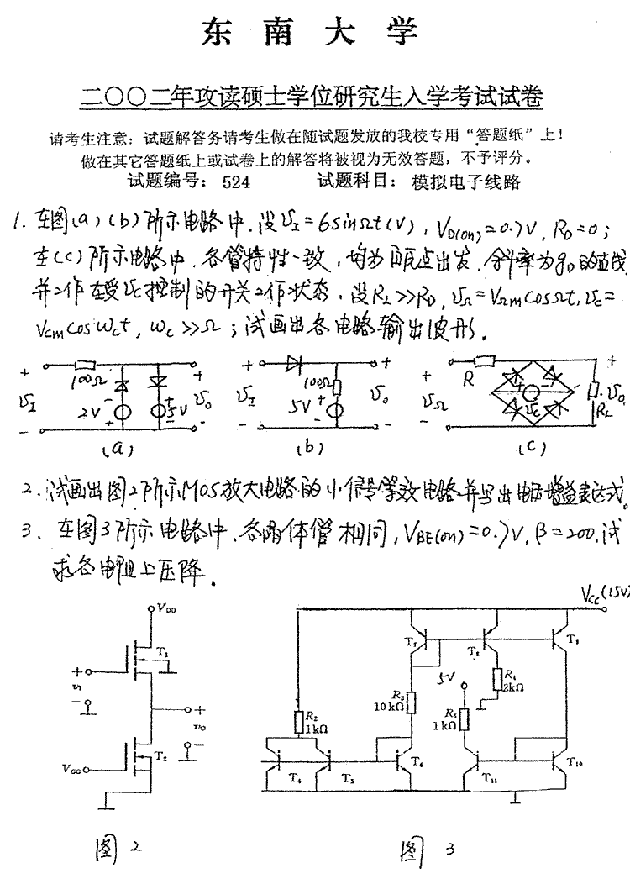 东南大学
二〇〇二年攻读硕士学位研究生入学考试试卷
请考生注意：试题解答务请考生做在随试题发放的我校专用“答题纸”上！
做在其它答题纸上或试卷上的解答将被视为无效答题，不予评分。
试题编号： 524 试题科目： 模拟电子线路
1. 在图(a)(b)所示电路中，设υI=6sinΩt(V)，VD(on)=0.7V，RD=0；
在(c)所示电路中，各管特性一致，均为自原点出发、斜率为gD的直线
并工作在受υc控制的开关工作状态。设RL>>RD，υΩ=VΩmcosΩt，υc=
Vcmcosωct，ωc>>Ω；试画出各电路输出波形。
+ 100Ω + + 100Ω + + R +
υI 2V 5V υo υI 5V υo υΩ υc RL υo
− − − − − −
(a) (b) (c)
2. 试画出图2所示MOS放大电路的小信号等效电路并写出电压增益表达式。
3. 在图3所示电路中，各晶体管相同，VBE(on)=0.7V，β=200，试
求各电阻上压降。
VDD T1 + vi − + vo − VGG T2
VCC(15V)
T7 T8 T9
R3 10kΩ 5V R4 2kΩ
R2 1kΩ R5 1kΩ
T4 T5 T6 T11 T10
图2 图3